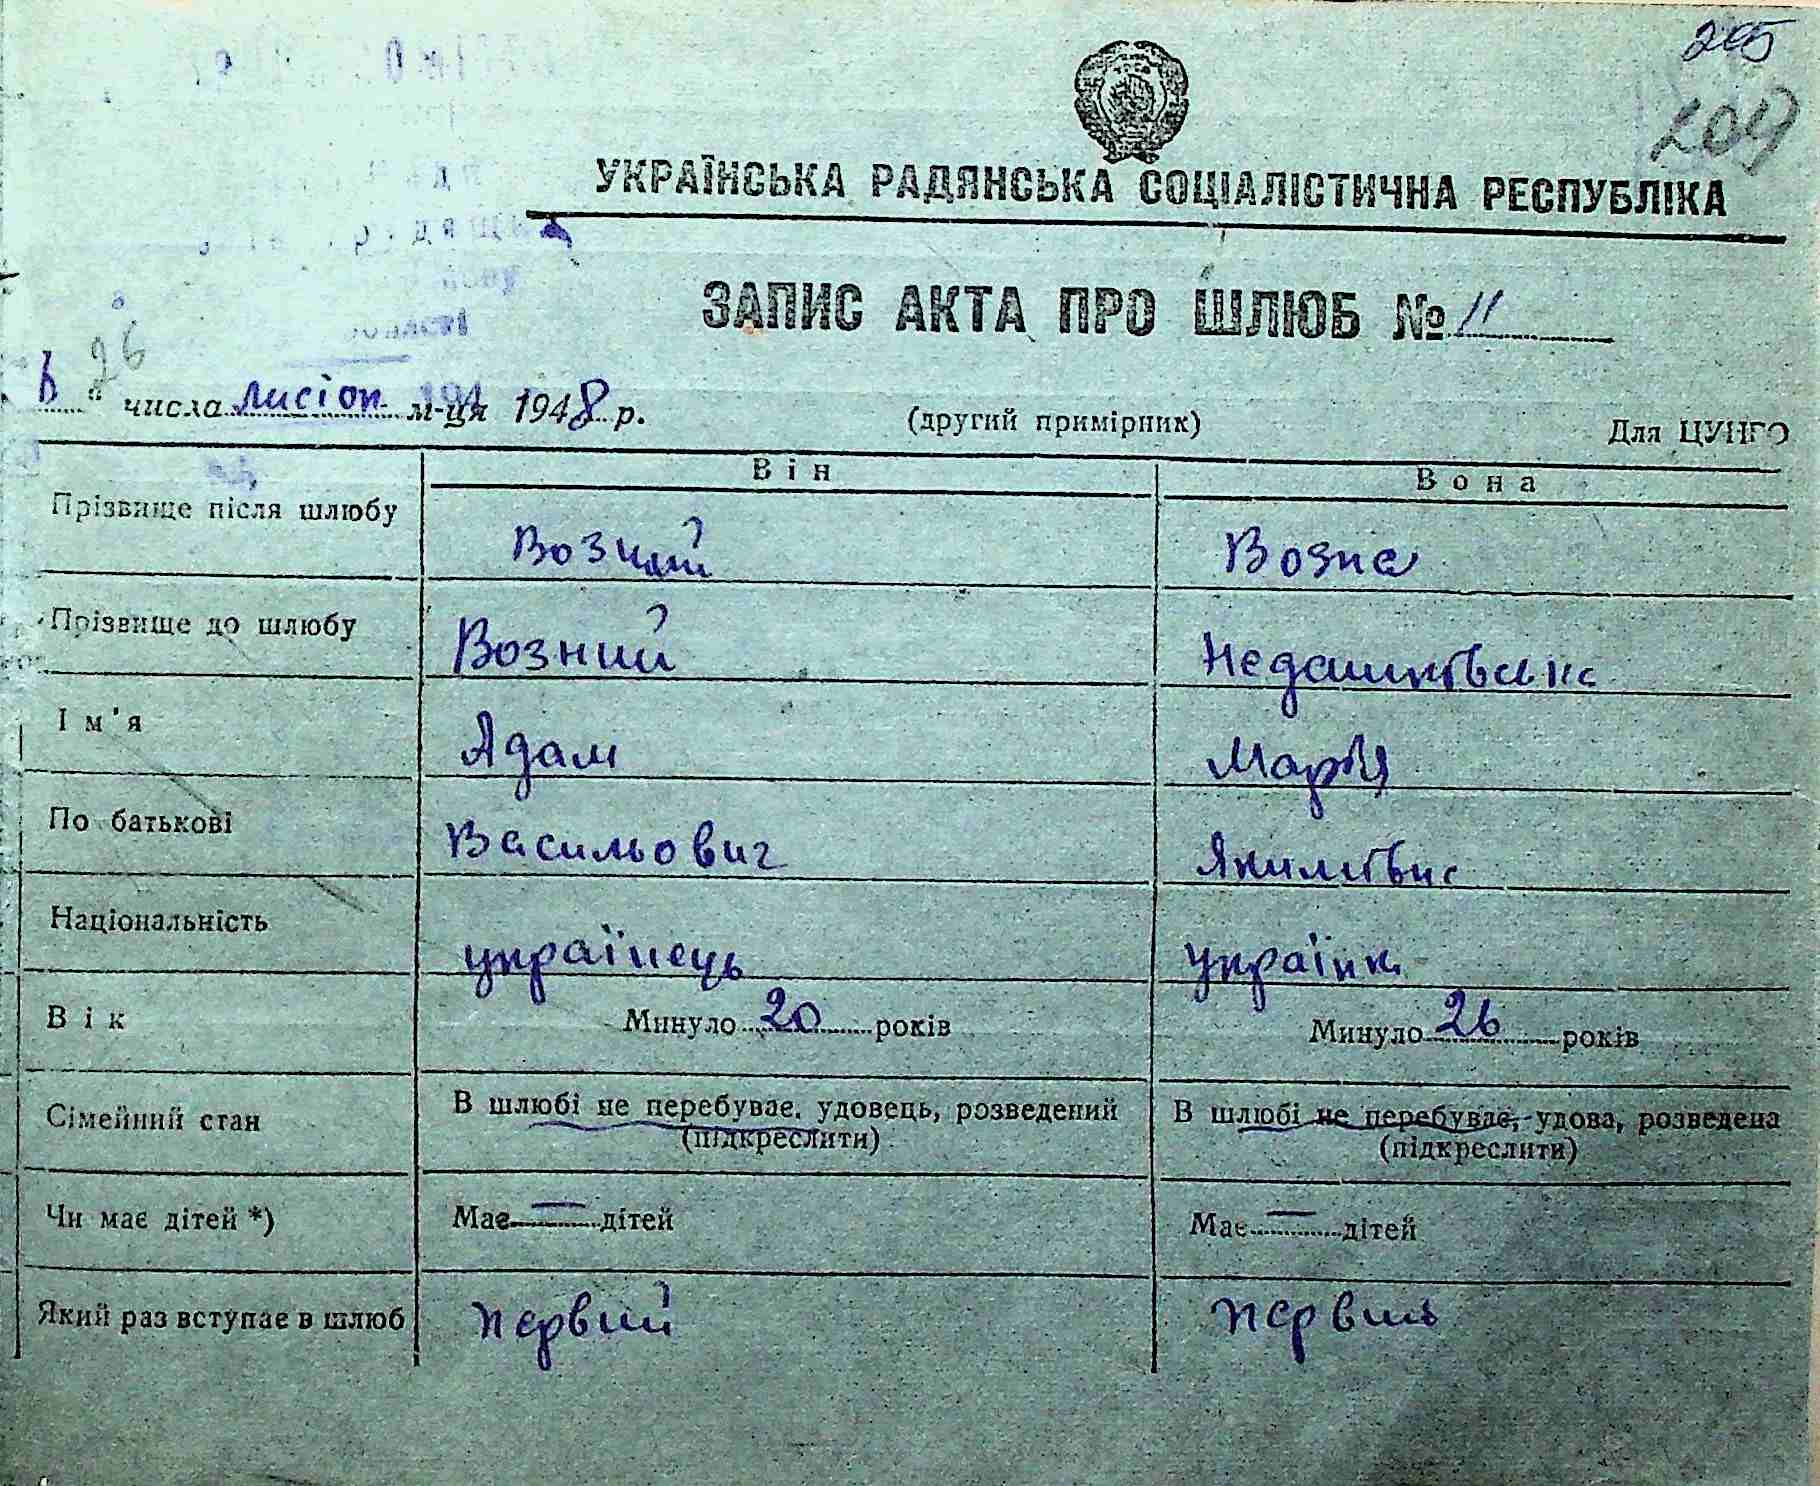 205
209
УКРАЇНСЬКА РАДЯНСЬКА СОЦІАЛІСТИЧНА РЕСПУБЛІКА
ЗАПИС АКТА ПРО ШЛЮБ № 11
26
" числа листоп м-ця 1948 р. (другий примірник) Для ЦУНГО
Він Вона
Прізвище після шлюбу Возний Возна
Прізвище до шлюбу Возний Недашківська
Ім'я Адам Марія
По батькові Васильович Якимівна
Національність українець українка
Вік Минуло 20 років Минуло 26 років
Сімейний стан В шлюбі не перебуває, удовець, розведений В шлюбі не перебуває, удова, розведена
(підкреслити) (підкреслити)
Чи має дітей *) Має — дітей Має — дітей
Який раз вступає в шлюб первий первий